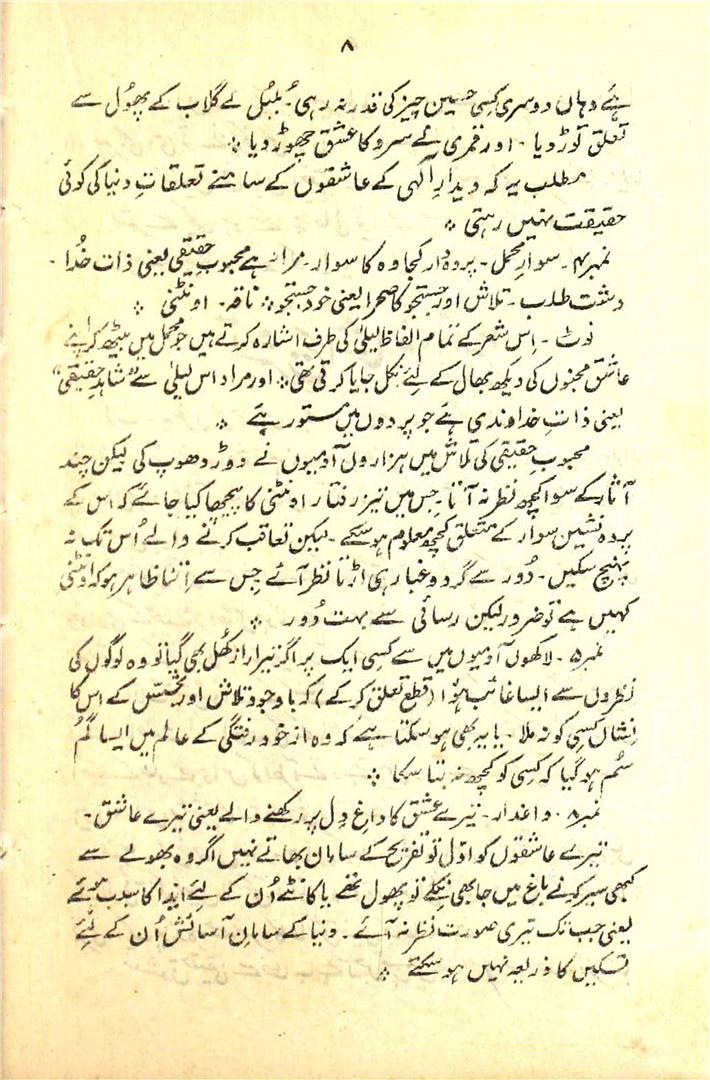 ۸
ہے وہاں دوسری کسی حسین چیز کی قدر نہ رہی۔ بلبل نے گلاب کے پھول سے
تعلق توڑ دیا ۔ اور قمری نے سرو کا عشق چھوڑ دیا ؞
مطلب یہ کہ دیدارِ الٰہی کے عاشقوں کے سامنے تعلقاتِ دنیا کی کوئی
حقیقت نہیں رہتی ؞
نمبر۴۔ سوارِ محمل۔ پردہ دار کجاوہ کا سوار۔ مراد ہے محبوبِ حقیقی یعنی ذات خُدا ۔
دشت طلب ۔ تلاش اور جستجو کا صحرا یعنی خود جستجو ؞ ناقہ ۔ اونٹنی ؞
نوٹ ۔ اِس شعر کے تمام الفاظ لیلیٰ کی طرف اشارہ کرتے ہیں جو محمل میں بیٹھ کر اپنے
عاشق مجنوں کی دیکھ بھال کے لئے نکل جایا کرتی تھی ؞ اور مراد اس لیلیٰ سے ”شاہدِ حقیقی“
یعنی ذاتِ خداوندی ہے جو پردوں میں مستور ہے ؞
محبوب حقیقی کی تلاش میں ہزاروں آدمیوں نے دوڑ دھوپ کی لیکن چند
آثار کے سوا کچھ نظر نہ آتا۔ جس میں تیز رفتار اونٹنی کا پیچھا کیا جائے کہ اس کے
پردہ نشین سوار کے متعلق کچھ معلوم ہو سکے ۔ لیکن تعاقب کرنے والے اُس تک نہ
پہنچ سکیں ۔ دُور سے گرد و غبار ہی اڑتا نظر آئے جس سے اِتنا ظاہر ہو کہ اونٹنی
کہیں ہے تو ضرور لیکن رسائی سے بہت دُور ؞
نمبر۵۔ لاکھوں آدمیوں میں سے کسی ایک پر اگر تیرا راز کھُل بھی گیا تو وہ لوگوں کی
نظروں سے ایسا غائب ہؤا (قطع تعلق کر کے) کہ باوجود تلاش اور تجسّس کے اس کا
نِشان کسی کو نہ ملا ۔ یا یہ بھی ہو سکتا ہے کہ وہ از خود رفتگی کے عالم میں ایسا گُم
سُم ہو گیا کہ کسی کو کچھ نہ بتا سکا ؞
نمبر۸۔ داغدار۔ تیرے عشق کا داغ دِل پر رکھنے والے یعنی تیرے عاشق ۔
تیرے عاشقوں کو اوّل تو تفریح کے سامان بھاتے نہیں اگر وہ بھولے سے
کبھی سیر کرنے باغ میں جا بھی نکلے تو پھول تھے یا کانٹے اُن کے لئے ایذا کا سبب ہوئے
یعنی جب تک تیری صورت نظر نہ آئے ۔ دنیا کے سامانِ آسائش اُن کے لئے
تسکین کا ذریعہ نہیں ہو سکتے ؞